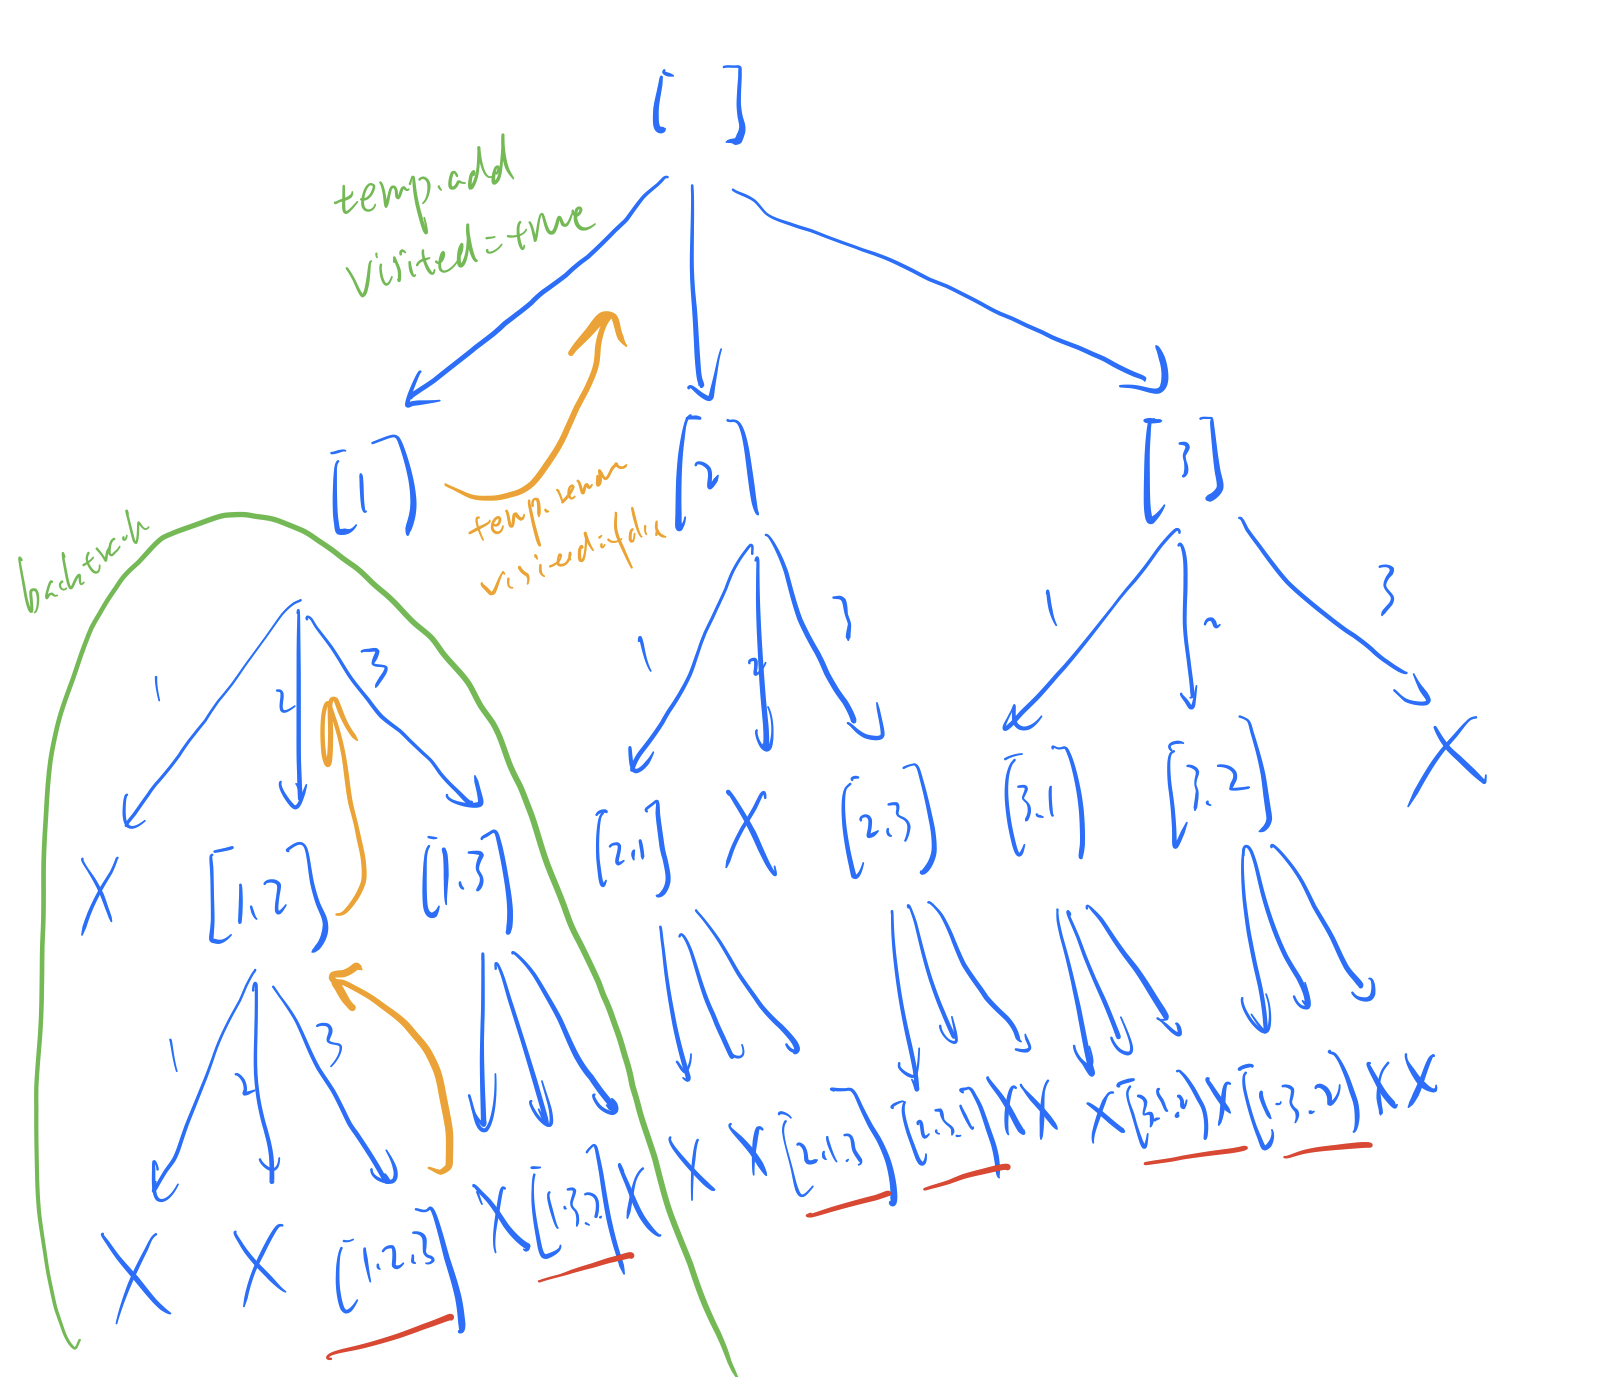 [ ]
temp.add
visited=true
[1]
[2]
[3]
temp.remov
visited=false
backtrack
1
2
3
1
2
3
1
2
3
X
[1,2]
[1.3]
[2.1]
X
[2.3]
[3.1]
[3.2]
X
1
2
3
X
X
[1.2.3]
X
[1.3.2]
X
X
X
[2.1.3]
[2.3.1]
X
X
X
[3.1.2]
X
[1.3.2]
X
X